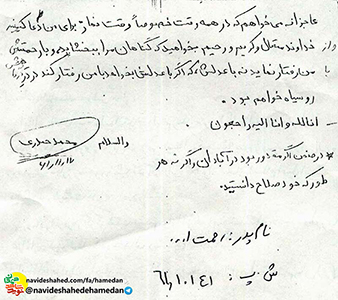 عاجزانه می‌خواهم که در همه وقت خصوصاً وقت نماز برای من دعا کنید
و از خداوند متعال و کریم و رحیم بخواهید که گناهان مرا ببخشاید و با رحمتش
با من رفتار نماید نه با عدلش، که اگر با عدلش بخواهد با من رفتار کند در
روسیاه خواهم بود.
انالله و انا الیه راجعون
والسلام
محمد
* در ضمن اگر دور بود در آبادان و اگر نه هر
طور که خود صلاح دانستید.
نام پدر: رحمت
ش پ: ۶۱۱۰۱۴۱
navideshahed.com/fa/hamedan
@navideshahedehamedan